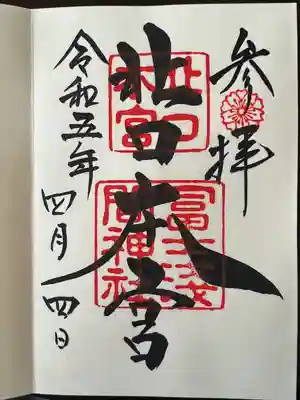 参拝
北口本宮
北口
本宮
冨士浅
間神社
令和五年
四月四日